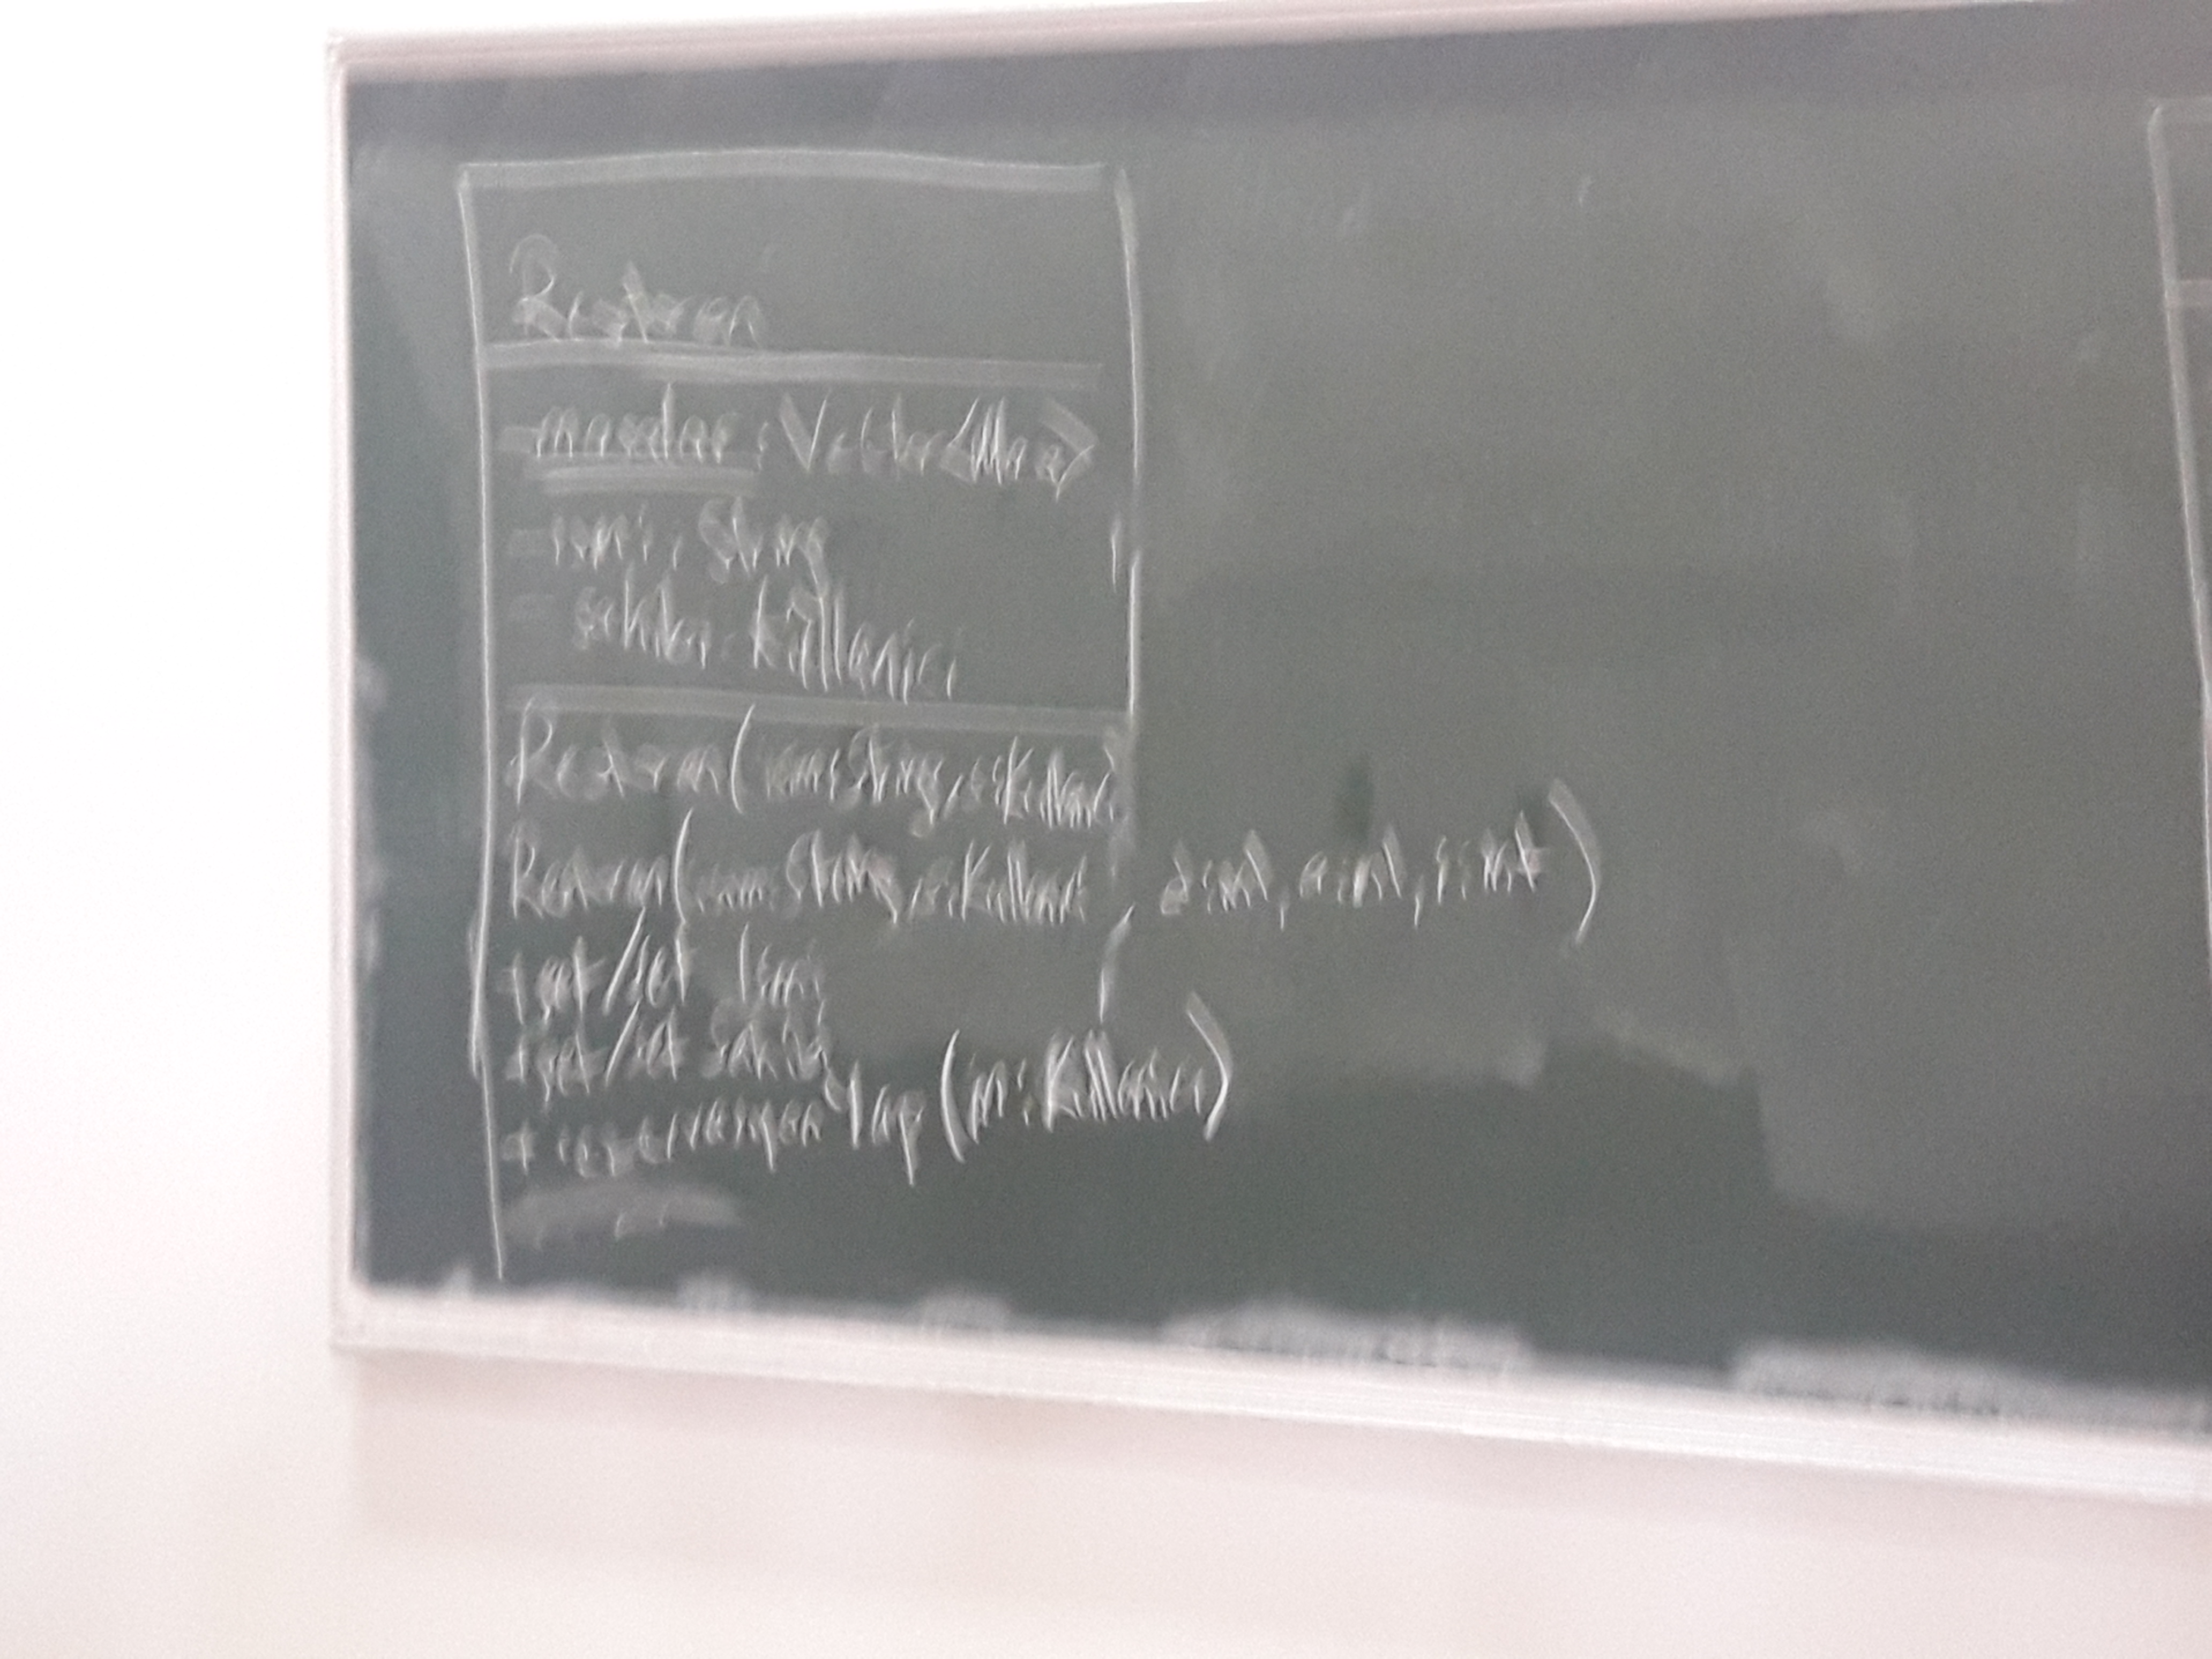 Restoran
- masalar : Vektor<Masa>
- ismi : String
- sahibi : Kullanici
Restoran(ismi:String, s:Kullanici)
Restoran(ismi:String, s:Kullanici, d:int, a:int, s:int)
+ get/set Ismi
+ get/set Sahibi
+ rezervasyonYap(m:Kullanici)